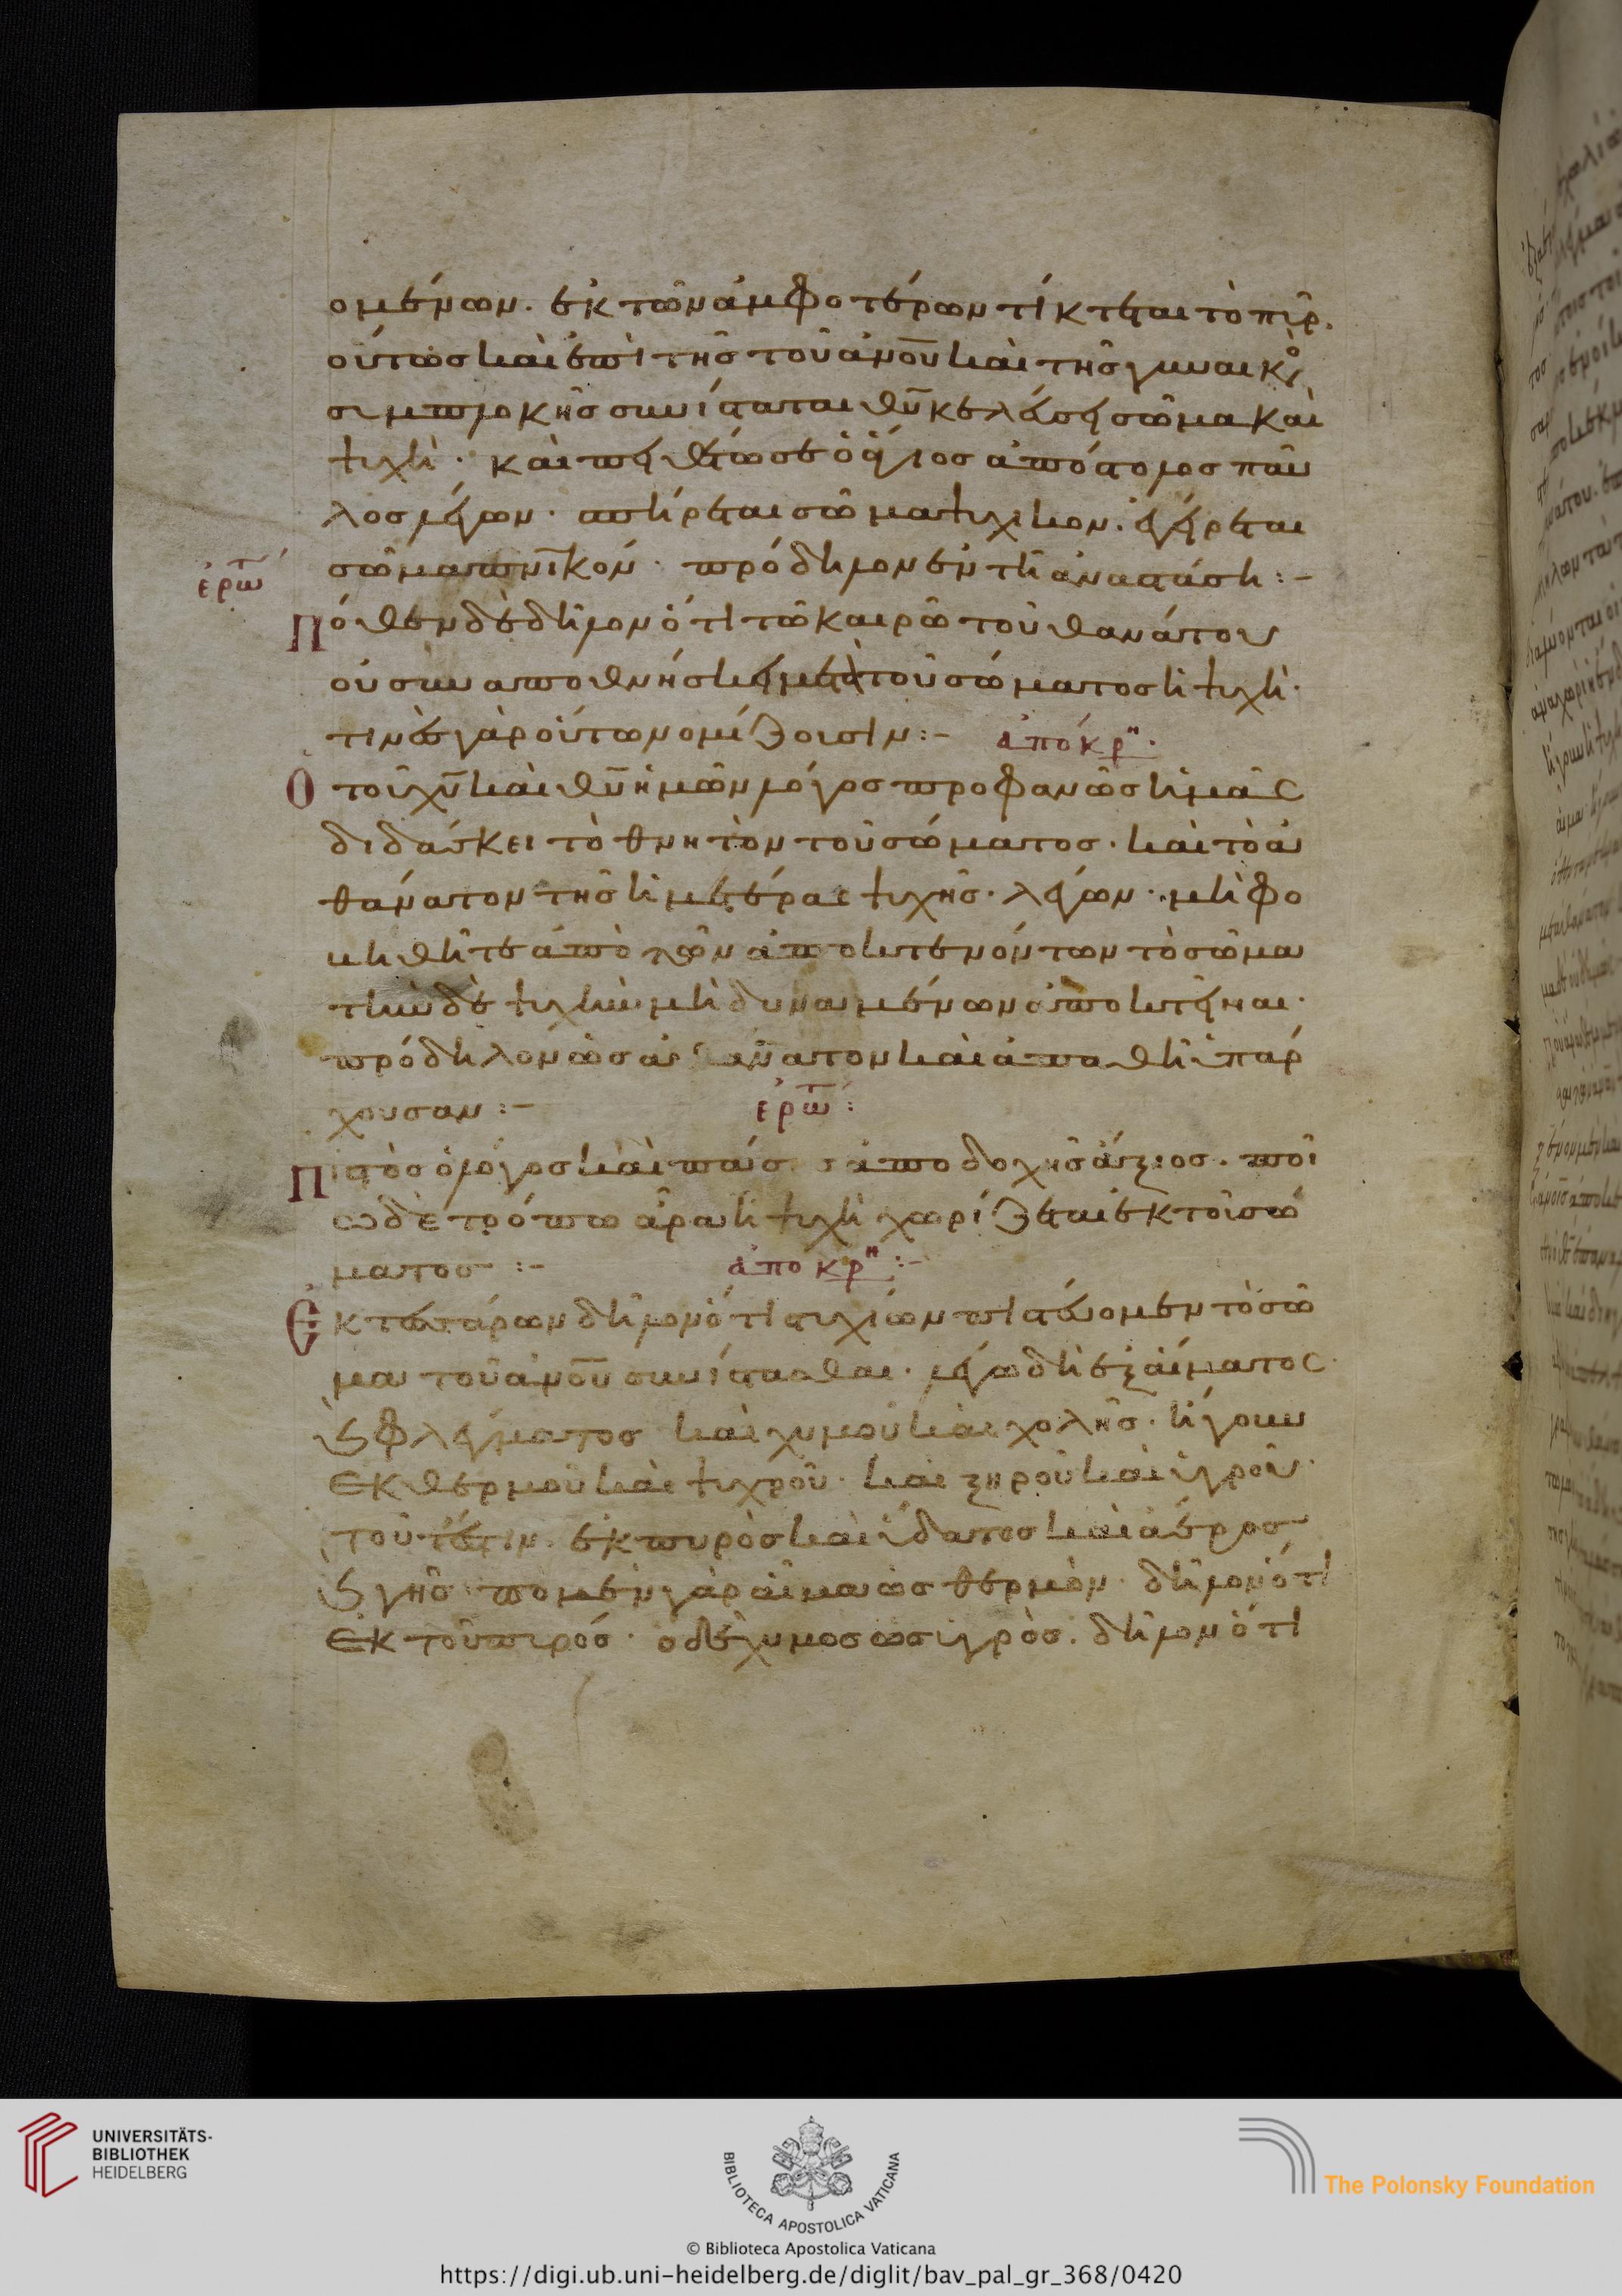 ομένων. ἐκ τῶν ἀμφοτέρων τίκτεται τὸ πῦρ.
οὕτως καὶ ἐπὶ τῆς τοῦ ἀνου καὶ τῆς γυναικὸ
συμπλοκῆς συνίσταται θυ κελεύσει σῶμα καὶ
ψυχὴ· καὶ πειθέτω σε ὁ θεῖος ἀπόστολος παῦ
λος λέγων· σπείρεται σῶμα ψυχικον. ἐγείρεται
ἐρωτ
σῶμα πνικόν· πρόδηλον ἐν τῆ ἀναστάση:-
Πόθεν δὲ δῆλον ὅτι τῶ καιρῶ τοῦ θανάτου
οὐ συναποθνήσκει μετὰ τοῦ σώματος ἡ ψυχὴ·
τινὲς γὰρ οὕτω νομίζουσιν:- ἀπόκρη.
Ὁ τοῦ χυ καὶ θυ ἡμῶν λόγος προφανῶς ἡμᾶς
διδάσκει τὸ θνητὸν τοῦ σώματος· καὶ τὸ ἀ
θάνατον τῆς ἡμετέρας ψυχῆς· λέγων· μὴ φο
βηθῆτε ἀπὸ τῶν ἀποκτενόντων τὸ σῶμα
τὴν δὲ ψυχὴν μὴ δυναμένων ἀποκτεῖναι·
πρόδηλον ὡς ἀθάνατον καὶ ἀπαθῆ ὑπάρ
χουσαν:- ἐρωτ:
Πιστὸς ὁ λόγος καὶ πάσης ἀποδοχῆς ἄξιος. ποῖ
ω δὲ τρόπω ἄρα ἡ ψυχὴ χωρίζεται ἐκ τοῦ σώ
ματος:- ἀποκρη:-
Ἐκ τεσσάρων δῆλον ὅτι στυχίων πιστεύομεν τὸ σῶ
μα τοῦ ἀνου συνίστασθαι· λέγω δὴ ἐξ αἵματος·
ϗ φλέγματος καὶ χυμοῦ καὶ χολῆς· ἤγουν
ἐκ θερμοῦ καὶ ψυχροῦ· καὶ ξηροῦ καὶ ὑγροῦ·
τοῦτέστιν. ἐκ πυρὸς καὶ ὕδατος καὶ ἀέρος
ϗ γῆς· το μὲν γὰρ αἷμα ὡς θέρμὸν· δῆλον ὅτι
ἐκ τοῦ πυρός· ὁ δὲ χυμος ὡς ὑγρὸς. δῆλον ὅτι
UNIVERSITÄTS-
BIBLIOTHEK
HEIDELBERG
BIBLIOTECA APOSTOLICA VATICANA
The Polonsky Foundation
© Biblioteca Apostolica Vaticana
https://digi.ub.uni-heidelberg.de/diglit/bav_pal_gr_368/0420